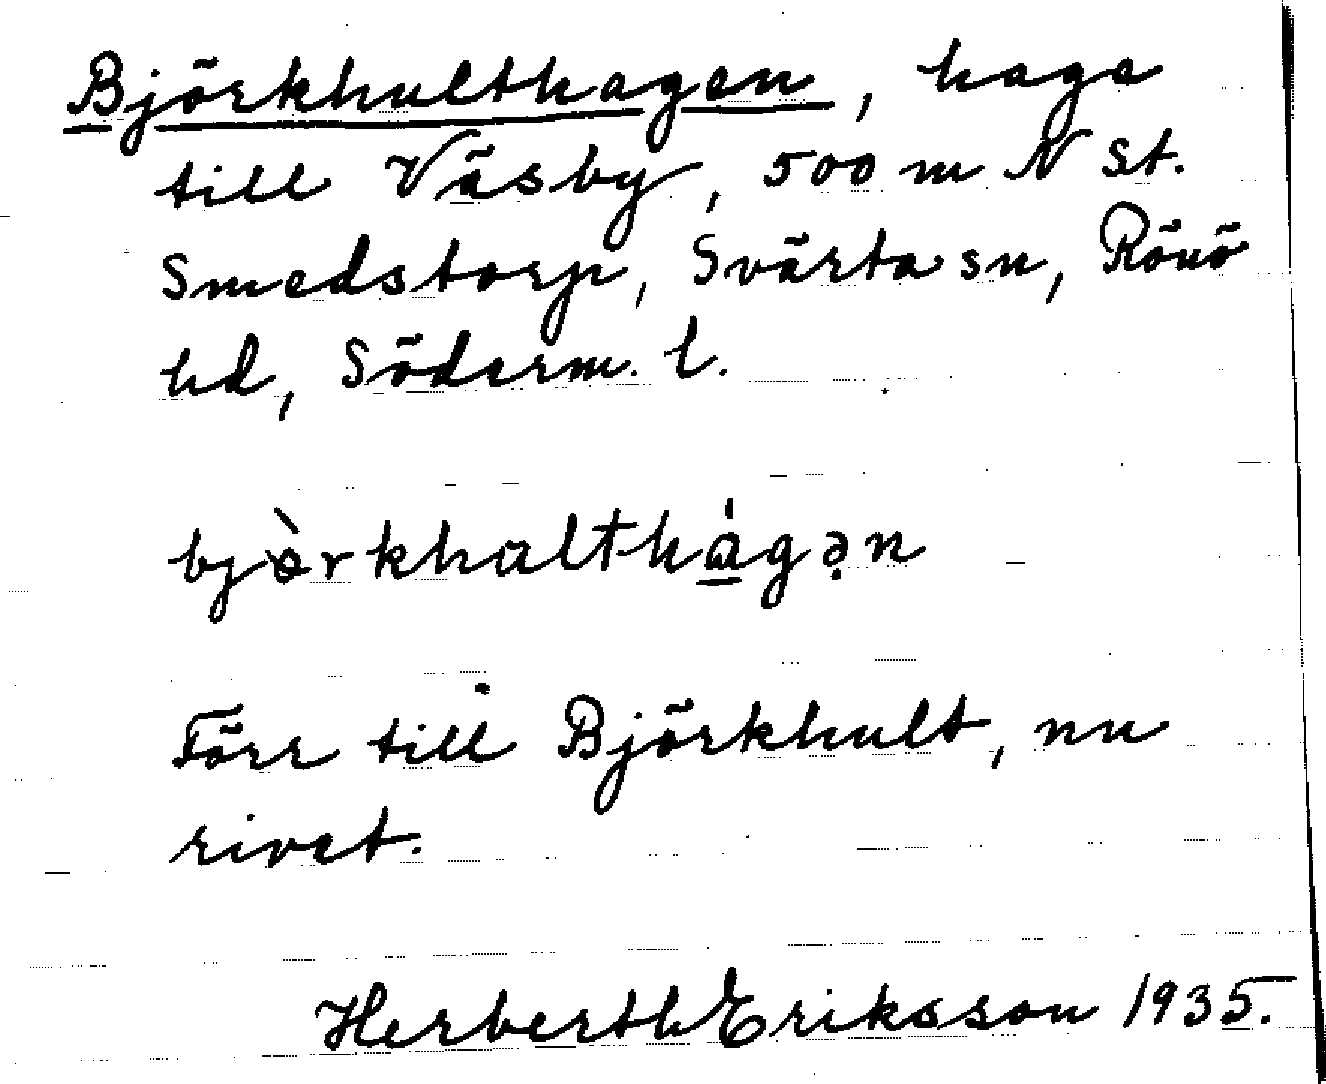 Björkhulthagen, hage
till Väsby, 500 m N st.
Smedstorp, Svärta sn, Rönö
hd, Söderm. l.
bjòrkhalthágə̣n
Förr till Björkhult, nu
rivet.
Herberth Eriksson 1935.